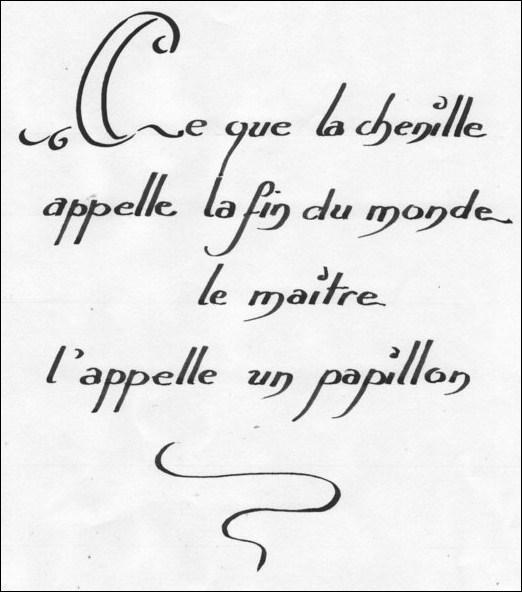 Ce que la chenille
appelle la fin du monde
le maître
l'appelle un papillon